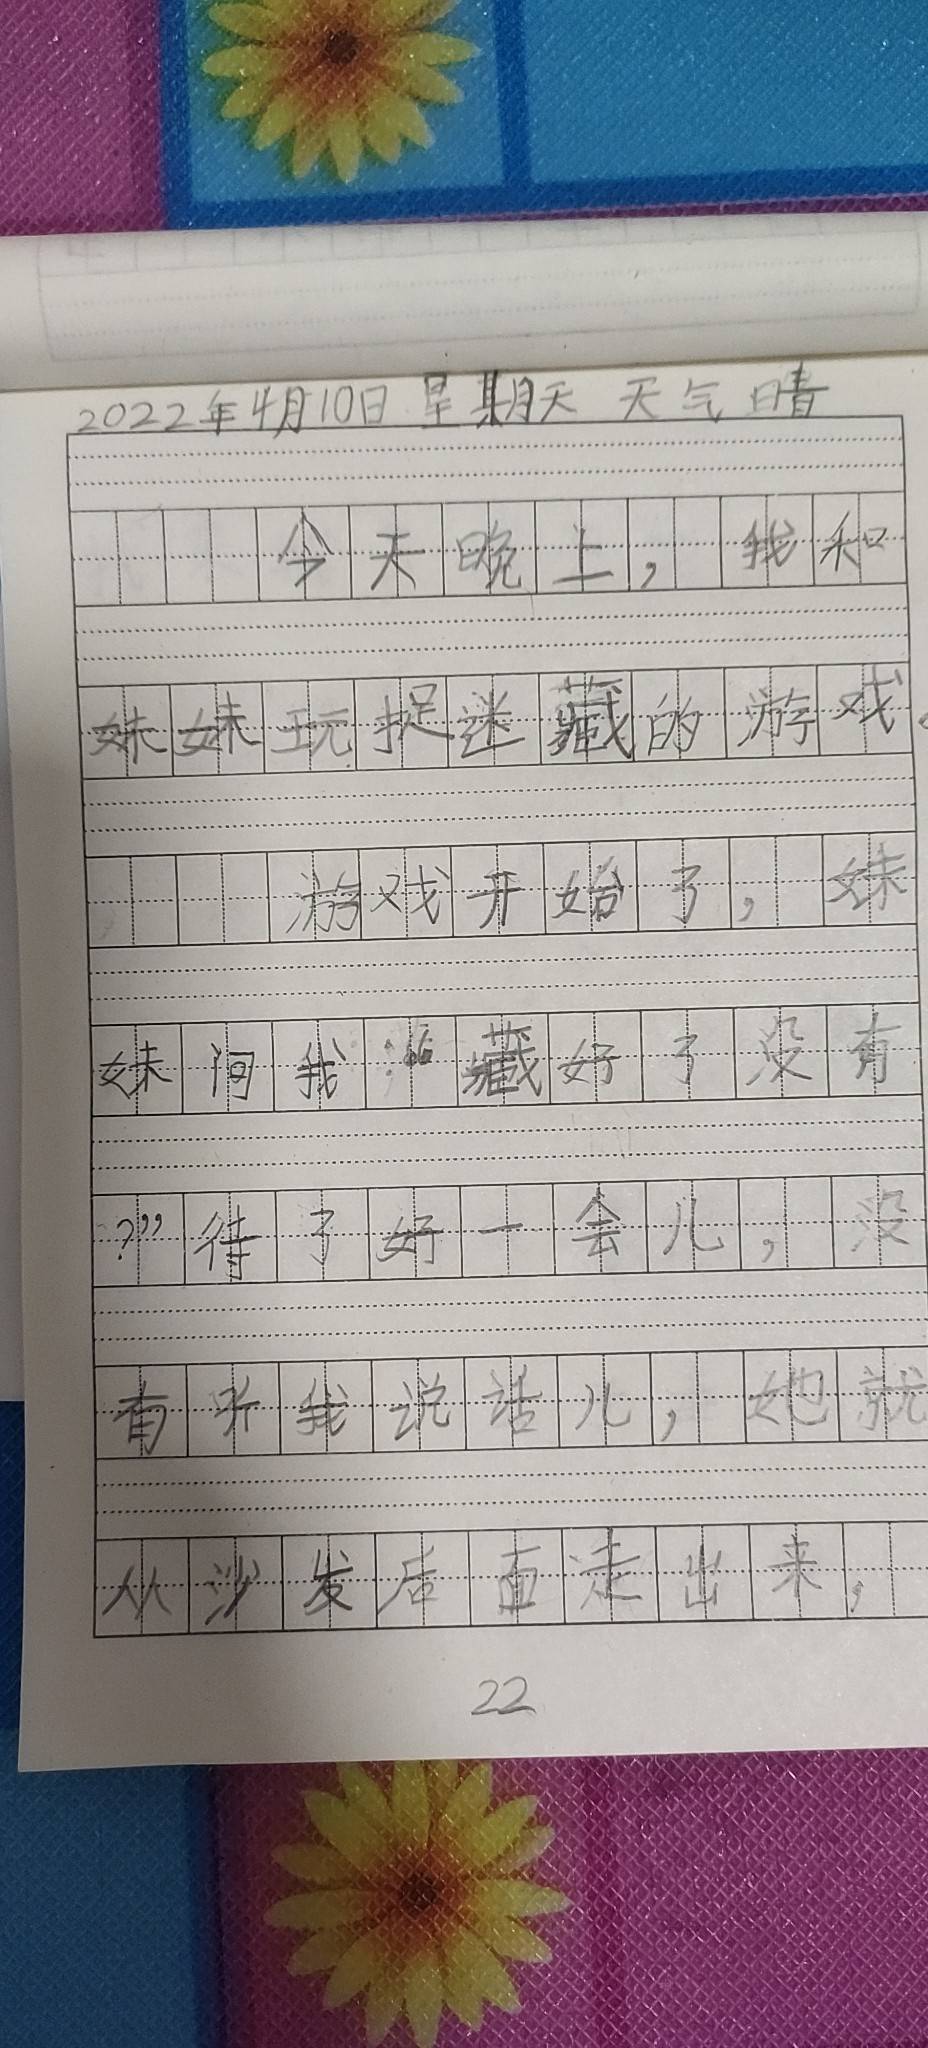 2022年4月10日 星期天 天气晴
今天晚上,我和
妹妹玩捉迷藏的游戏。
游戏开始了,妹
妹问我:“藏好了没有
?”待了好一会儿,没
有听我说话儿,她就
从沙发后面走出来,
22